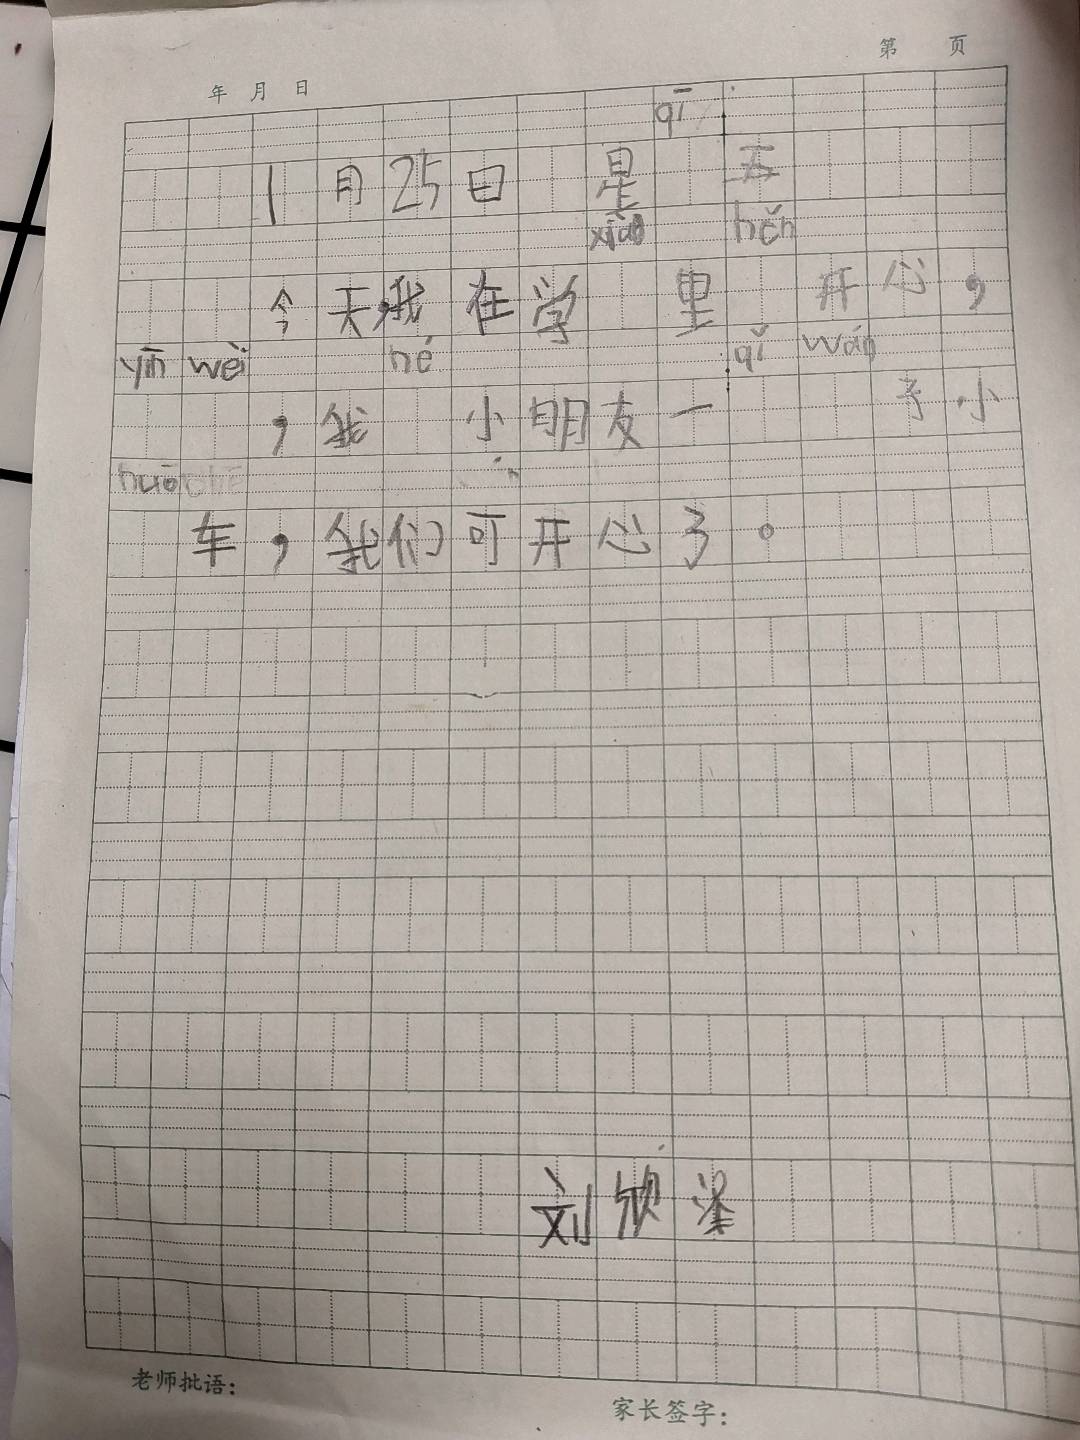 第 页
年 月 日
qī
1月25日 星 五
xiào hěn
今天,我在学 里 开心,
yīn wèi hé qǐ wán
,我 小朋友一 了小
huǒ chē
车,我们可开心了。
刘欣泽
老师批语:
家长签字: